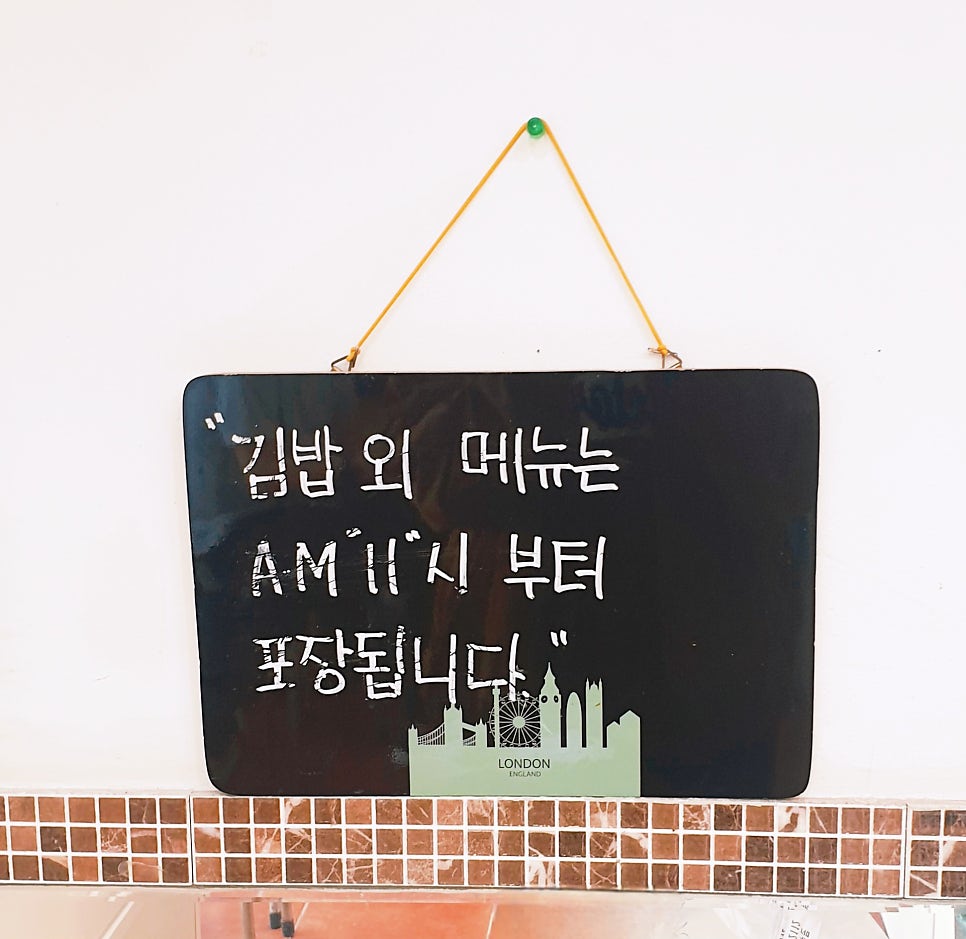 "김밥 외 메뉴는
AM "11"시 부터
포장됩니다."
LONDON
ENGLAND